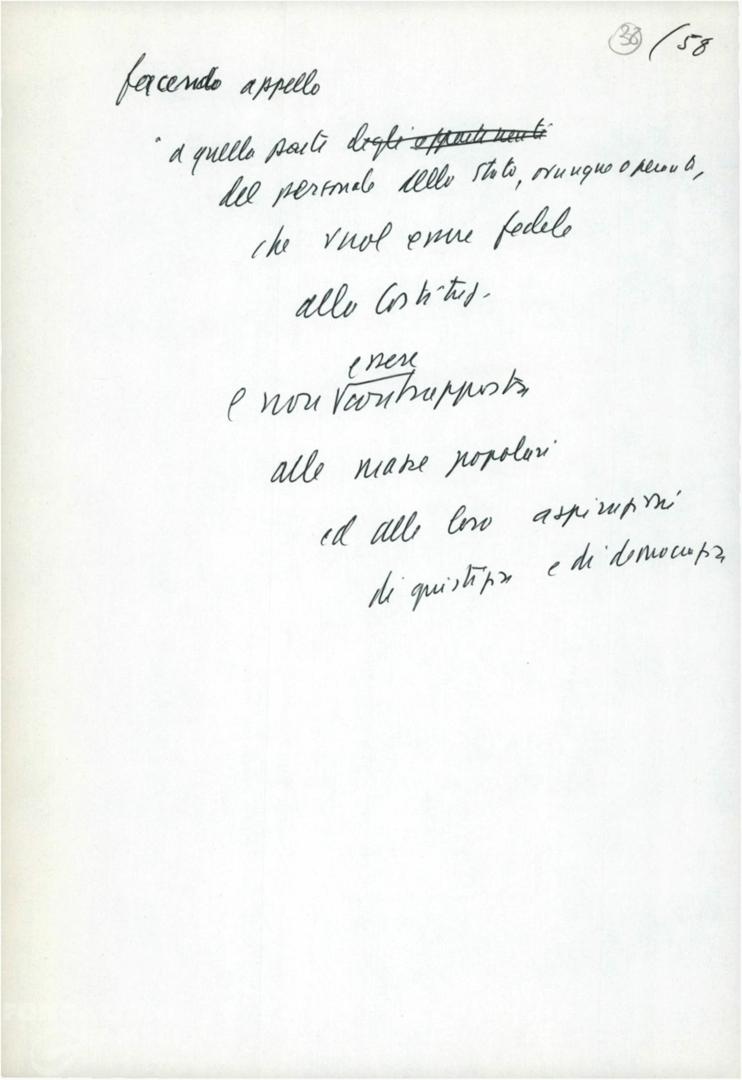 36 / 58
facendo appello
" a quella parte degli appartenenti
del personale dello stato, ovunque operante,
che vuol essere fedele
alla Costituz.
essere
e non contrapposta
alle masse popolari
ed alle loro aspirazioni
di giustizia e di democrazia